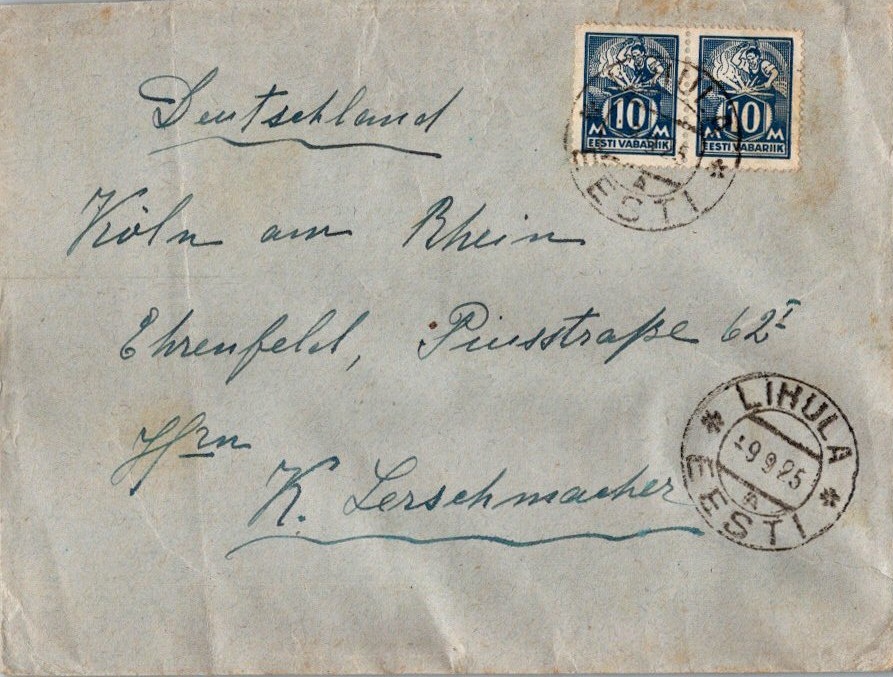 Deutschland
10 10
M M M M
EESTI VABARIIK EESTI VABARIIK
EESTI
Köln am Rhein
Ehrenfeld, Piusstraße 62 I
Hrn
K. Lerschmacher
LIHULA
-9 9 25
A
EESTI